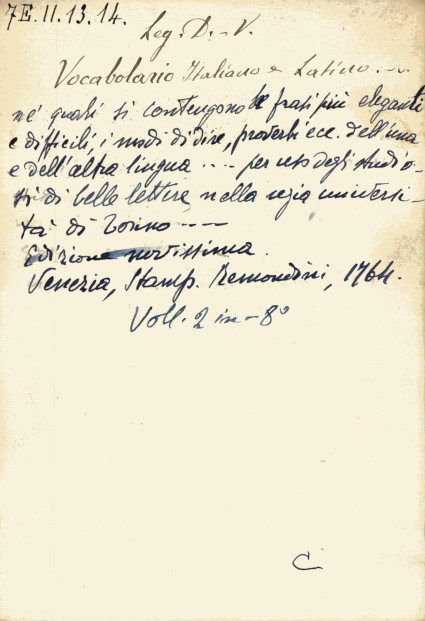 7E.II.13.14.
Leg. D.-V.
Vocabolario Italiano e Latino....
ne' quali si contengono le frasi più eleganti
e difficili, i modi di dire, proverbi ecc. dell'una
e dell'altra lingua .... per uso degli studio-
si di belle lettere nella regia universi-
tà di Torino ----
Edizione novissima.
Venezia, Stamp. Remondini, 1764.
Voll. 2 in-8°
C